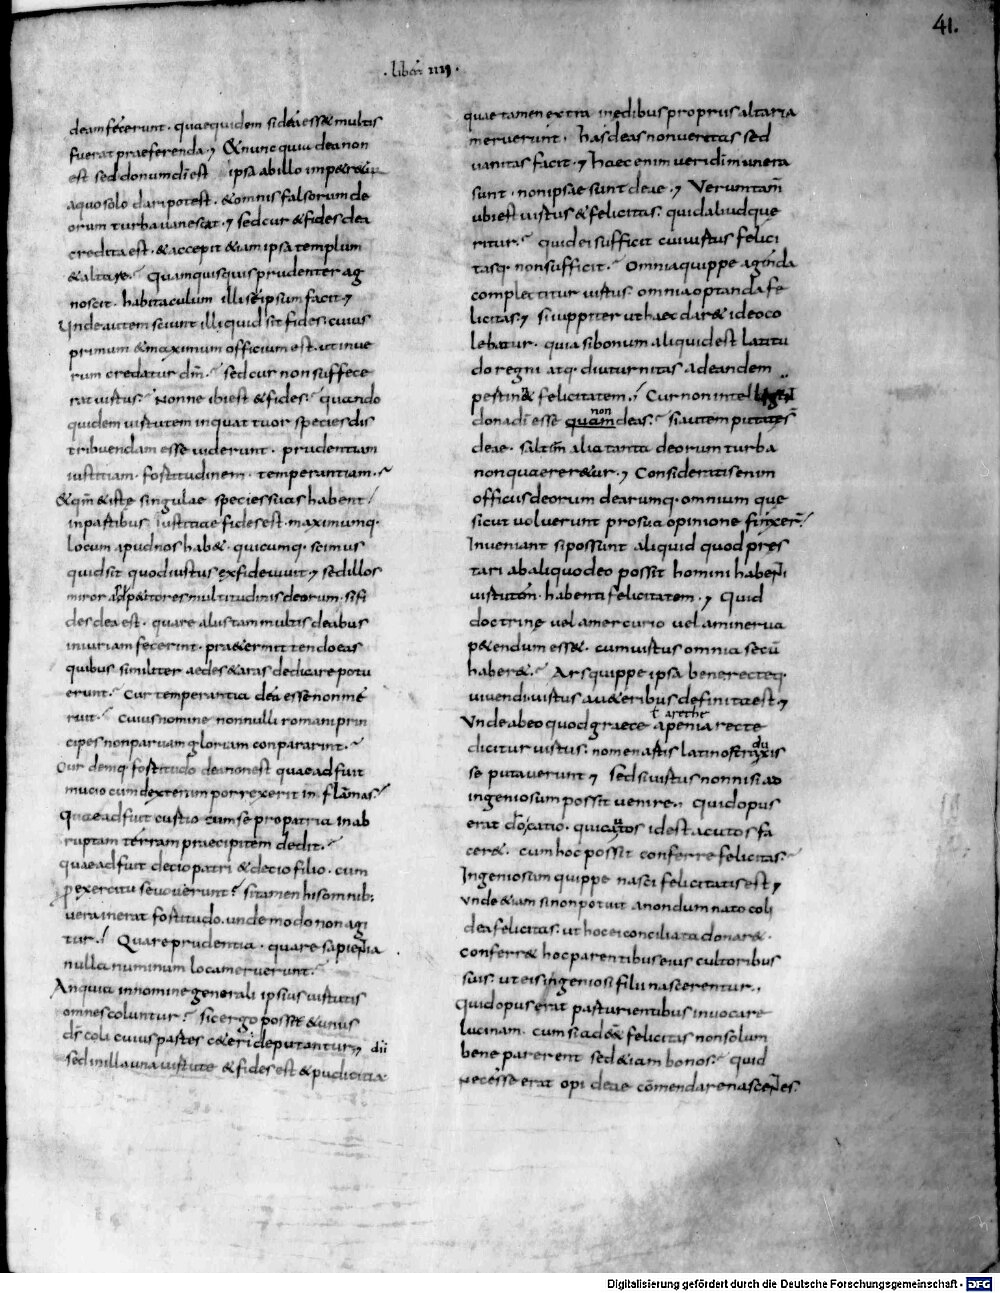 41.
· liber IIII ·
deam fecerunt · quae quidem si dea esset multis
fuerat praeferenda; & nunc quia dea non
est sed donum di est ipsa ab illo impetretur
a quo solo dari potest · & omnis falsorum de
orum turba uanescat; sed cur & fides dea
credita est · & accepit & iam ipsa templum
& altare? Quam quisquis prudenter ag
noscit · habitaculum illi se ipsum facit;
Unde autem sciunt illi quid sit fides · cuius
primum & maximum officium est · ut in ue
rum credatur dm̄? sed cur non suffece
rat uirtus? Nonne ibi est & fides? quando
quidem uirtutem in quattuor species dis
tribuendam esse uiderunt · prudentiam
iustitiam · fortitudinem · temperantiam ·
& qm̄ & iste singulae species suas habent /
in partibus iustitiae fides est · maximumq·
locum apud nos habet · quicumq· scimus
quid sit quod iustus ex fide uiuit; sed illos
miror adpetitores multitudinis deorum · si fi
des dea est · quare alias tam multis deabus
iniuriam fecerint · praetermittendo eas
quibus similiter aedes & aras dedicare potu
erunt? Cur temperantia dea esse non me
ruit? cuius nomine nonnulli romani prin
cipes non paruam gloriam conpararint?
Cur deniq· fortitudo dea non est quae adfuit
mucio cum dexteram porrexerit in flammas?
Quae adfuit curtio cum se pro patria in ab
ruptam terram praecipitem dedit?
quae adfuit decio patri & decio filio · cum
p exercitu se uouerunt? si tamen his omnib;
uera inerat fortitudo · unde modo non agi
tur? Quare prudentia · quare sapientia
nulla numinum loca meruerunt?
An quia in nomine generali ipsius uirtutis
omnes coluntur? sic ergo posset & unus
ds̄ coli cuius partes ceteri deputantur; dii
sed in illa una uirtute & fides est & pudicitia
quae tamen extra in edibus propriis altaria
meruerunt · has deas non ueritas sed
uanitas facit; haec enim ueri di munera
sunt · non ipsae sunt deae; Verumtam̄
ubi est uirtus & felicitas · quid aliud que
ritur? quid ei sufficit cui uirtus felici
tasq· non sufficit? Omnia quippe agenda
complectitur uirtus · omnia optanda fe
licitas; si iuppiter ut haec daret ideo co
lebatur · quia si bonum aliquid est latitu
do regni atq· diuturnitas ad eandem
pertinet felicitatem? Cur non intellecta
dona di esse quam non deas? si autem putatae s̄
deae · saltim alia tanta deorum turba
non quaereretur; Consideratis enim
officiis deorum dearumq· omnium que
sicut uoluerunt pro sua opinione finxer̄ /
Inueniant si possunt aliquid quod pres
tari ab aliquo deo possit homini habenti
uirtutem · habenti felicitatem; Quid
doctrine uel a mercurio uel a minerua
petendum esset · cum uirtus omnia secū
haberet? Ars quippe ipsa bene recteq·
uiuendi uirtus a ueteribus definita est;
Unde ab eo quod graece ł arethe apenia recte
dicitur uirtus · nomen artis latinos traduxis
se putauerunt; Sed si uirtus non nisi ad
ingeniosum possit uenire,, quid opus
erat dō catio · qui catos id est acutos fa
ceret · cum hoc possit conferre felicitas?
Ingeniosum quippe nasci felicitatis est;
Unde & iam si non potuit a nondum nato coli
dea felicitas · ut hoc ei conciliata donaret ·
conferret hoc parentibus eius cultoribus
suis · ut eis ingeniosi filii nascerentur,,
Quid opus erat parturientibus inuocare
lucinam · cum si adesset felicitas non solum
bene parerent sed & iam bonos? quid
necesse erat opi deae cōmendare nascentes ·
Digitalisierung gefördert durch die Deutsche Forschungsgemeinschaft - DFG